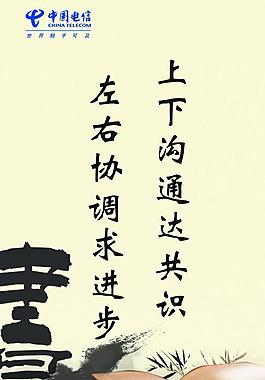 中国电信
CHINA TELECOM
世界触手可及
上下沟通达共识
左右协调求进步